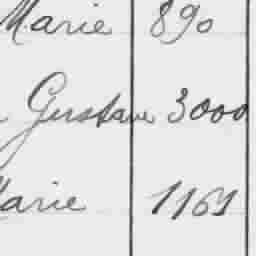 Marie 890
Gustave 3000
Marie 1161